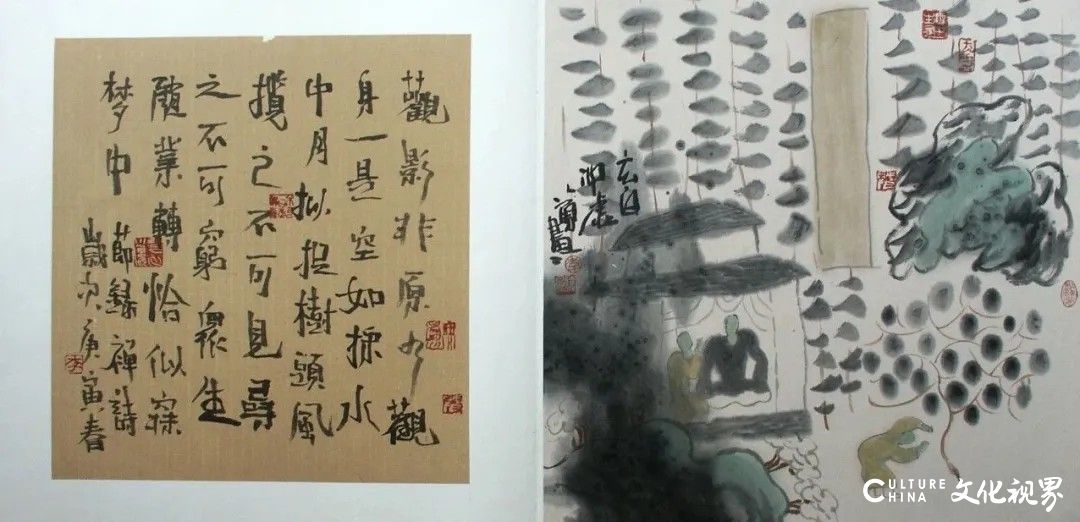 觀影非原有觀
身一是空如採水
中月拟捉樹頭風
攬之不可見尋
之不可窮眾生
隨業轉恰似寐
梦中 節録禪詩
歲次庚寅春
玄白
冲虚
CULTURE
CHINA 文化视界